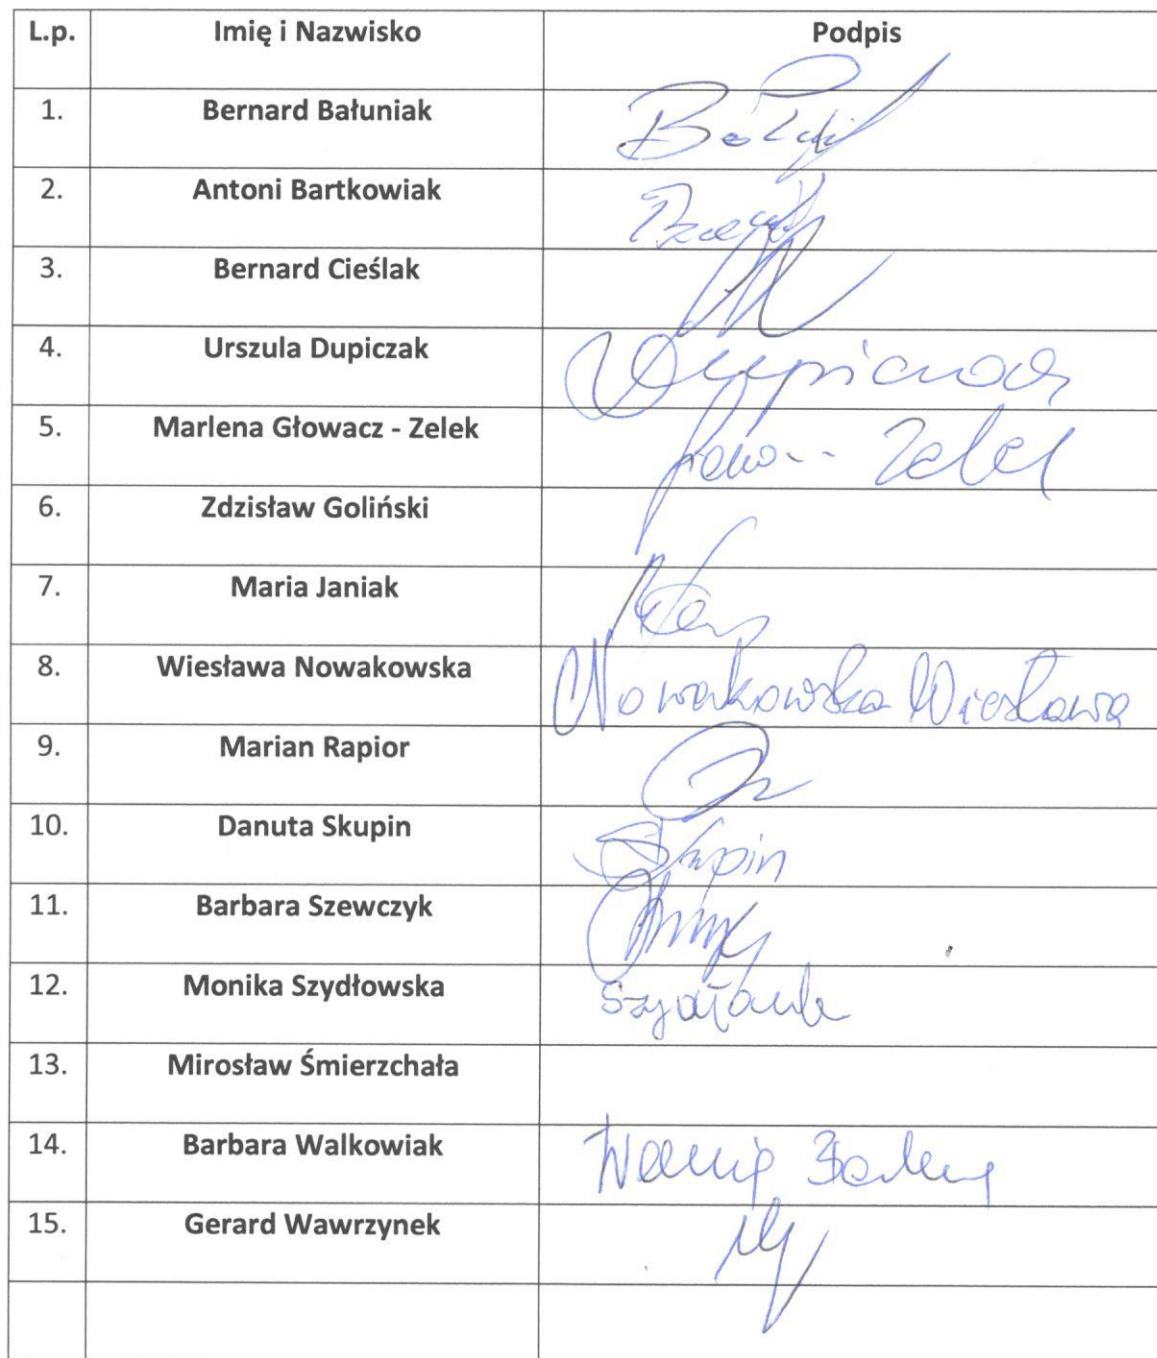 L.p. Imię i Nazwisko Podpis
1. Bernard Bałuniak
2. Antoni Bartkowiak
3. Bernard Cieślak
4. Urszula Dupiczak
5. Marlena Głowacz - Zelek Zelek
6. Zdzisław Goliński
7. Maria Janiak
8. Wiesława Nowakowska Nowakowska Wiesława
9. Marian Rapior
10. Danuta Skupin Skupin
11. Barbara Szewczyk
12. Monika Szydłowska
13. Mirosław Śmierzchała
14. Barbara Walkowiak
15. Gerard Wawrzynek